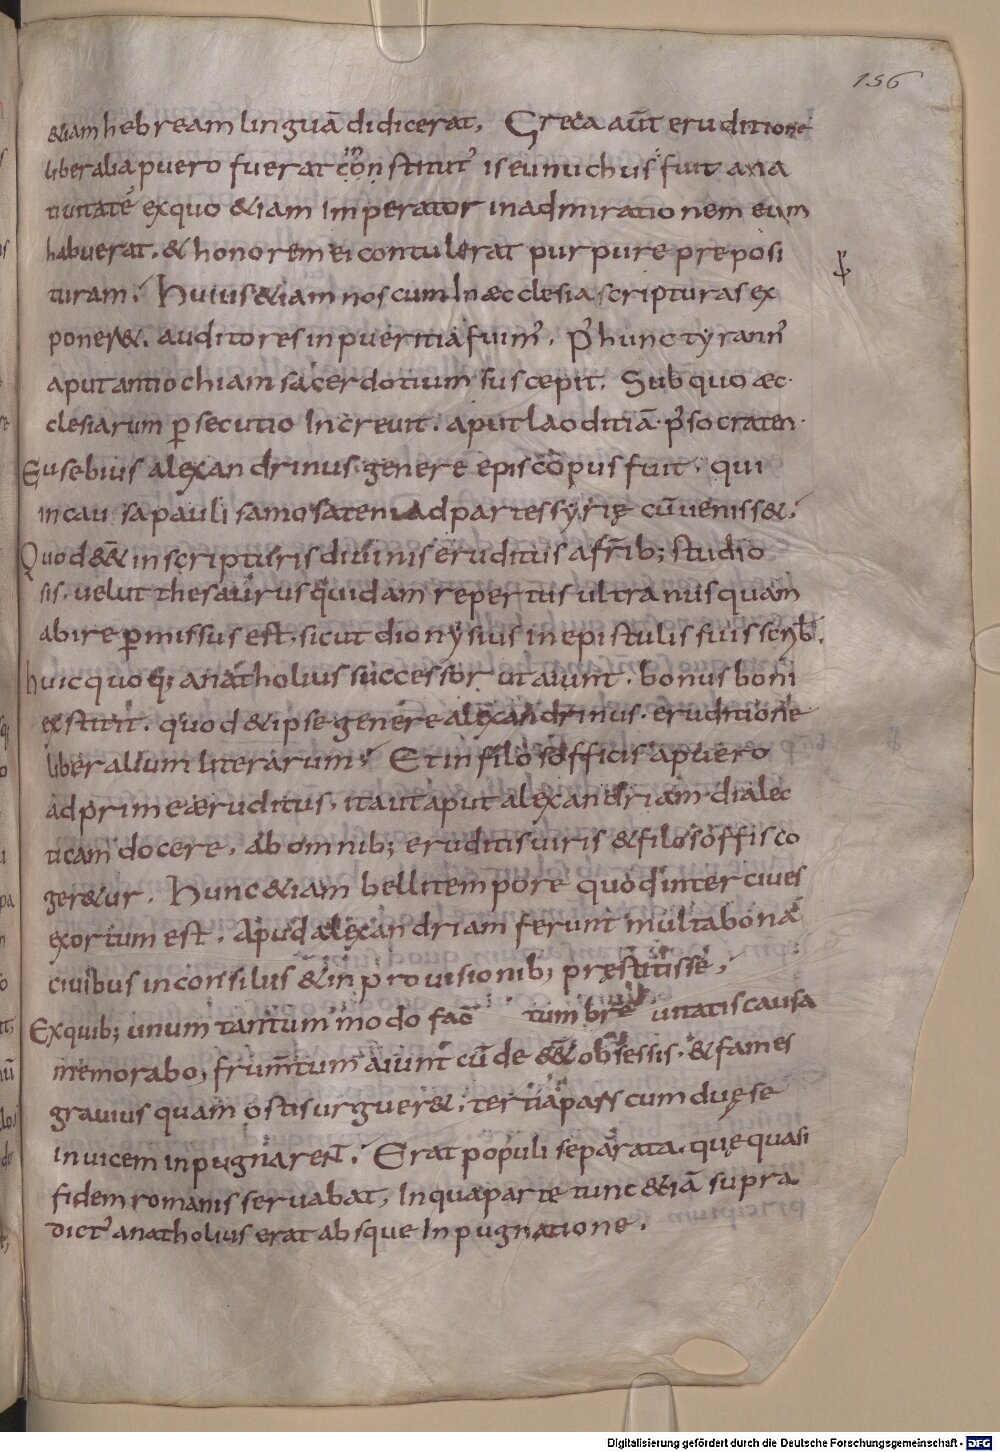 156
&iam hebream linguā didicerat, Greca aūt eruditione
liberalia puero fuerat constitut' is eunuchus fuit a na
tiuitate exquo &iam Imperator inadmirationem eum
habuerat. & honorem ei contulerat purpure preposi
turam; Huius &iam nos cum In æcclesia scripturas ex
poner&. auditores inpueritia fuim'. P' hunc tyrann'
aput antiochiam sacerdotium suscepit. Sub quo æc
clesiarum ꝑsecutio Increuit. aput laoditiā p' socraten
Eusebius alexandrinus genere episcopus fuit, qui
incausa pauli samosateni ad partes syrię cū ueniss&;
Quod &&̄ in scripturis diuinis eruditus a fr̄ib; studio
sis. uelut thesaurus quidam repertus ultra nusquam
abire ꝑmissus est, sicut dionysius in epistulis suis scrib̄.
huic quoq; anatholius successor ut aiunt. bonus boni
exstitit. quod & ipse genere alexandrinus. eruditione
liberalium literarum; Et in filosofficis apuero
adprime æruditus, ita ut aput alexandriam dialec
ticam docere. ab omnib; eruditis uiris & filosoffis co
ger&ur. Hunc &iam belli tempore quod inter ciues
exortum est. Apud alexandriam ferunt multa bona
ciuibus in consiliis & in prouisionib; pręstitisse;
Exquib; unum tantummodo fac̄ tum breuitatis causa
memorabo, frum̄tum aiunt cū de &&̄ obsessis. & fames
grauius quam ostis urguer&. tertia pars cum duę se
inuicem inpugnarent; Erat populi separata. quę quasi
fidem romanis seruabat, In qua parte tunc &iā supra
dict' anatholius erat absque Inpugnatione.
Digitalisierung gefördert durch die Deutsche Forschungsgemeinschaft - DFG